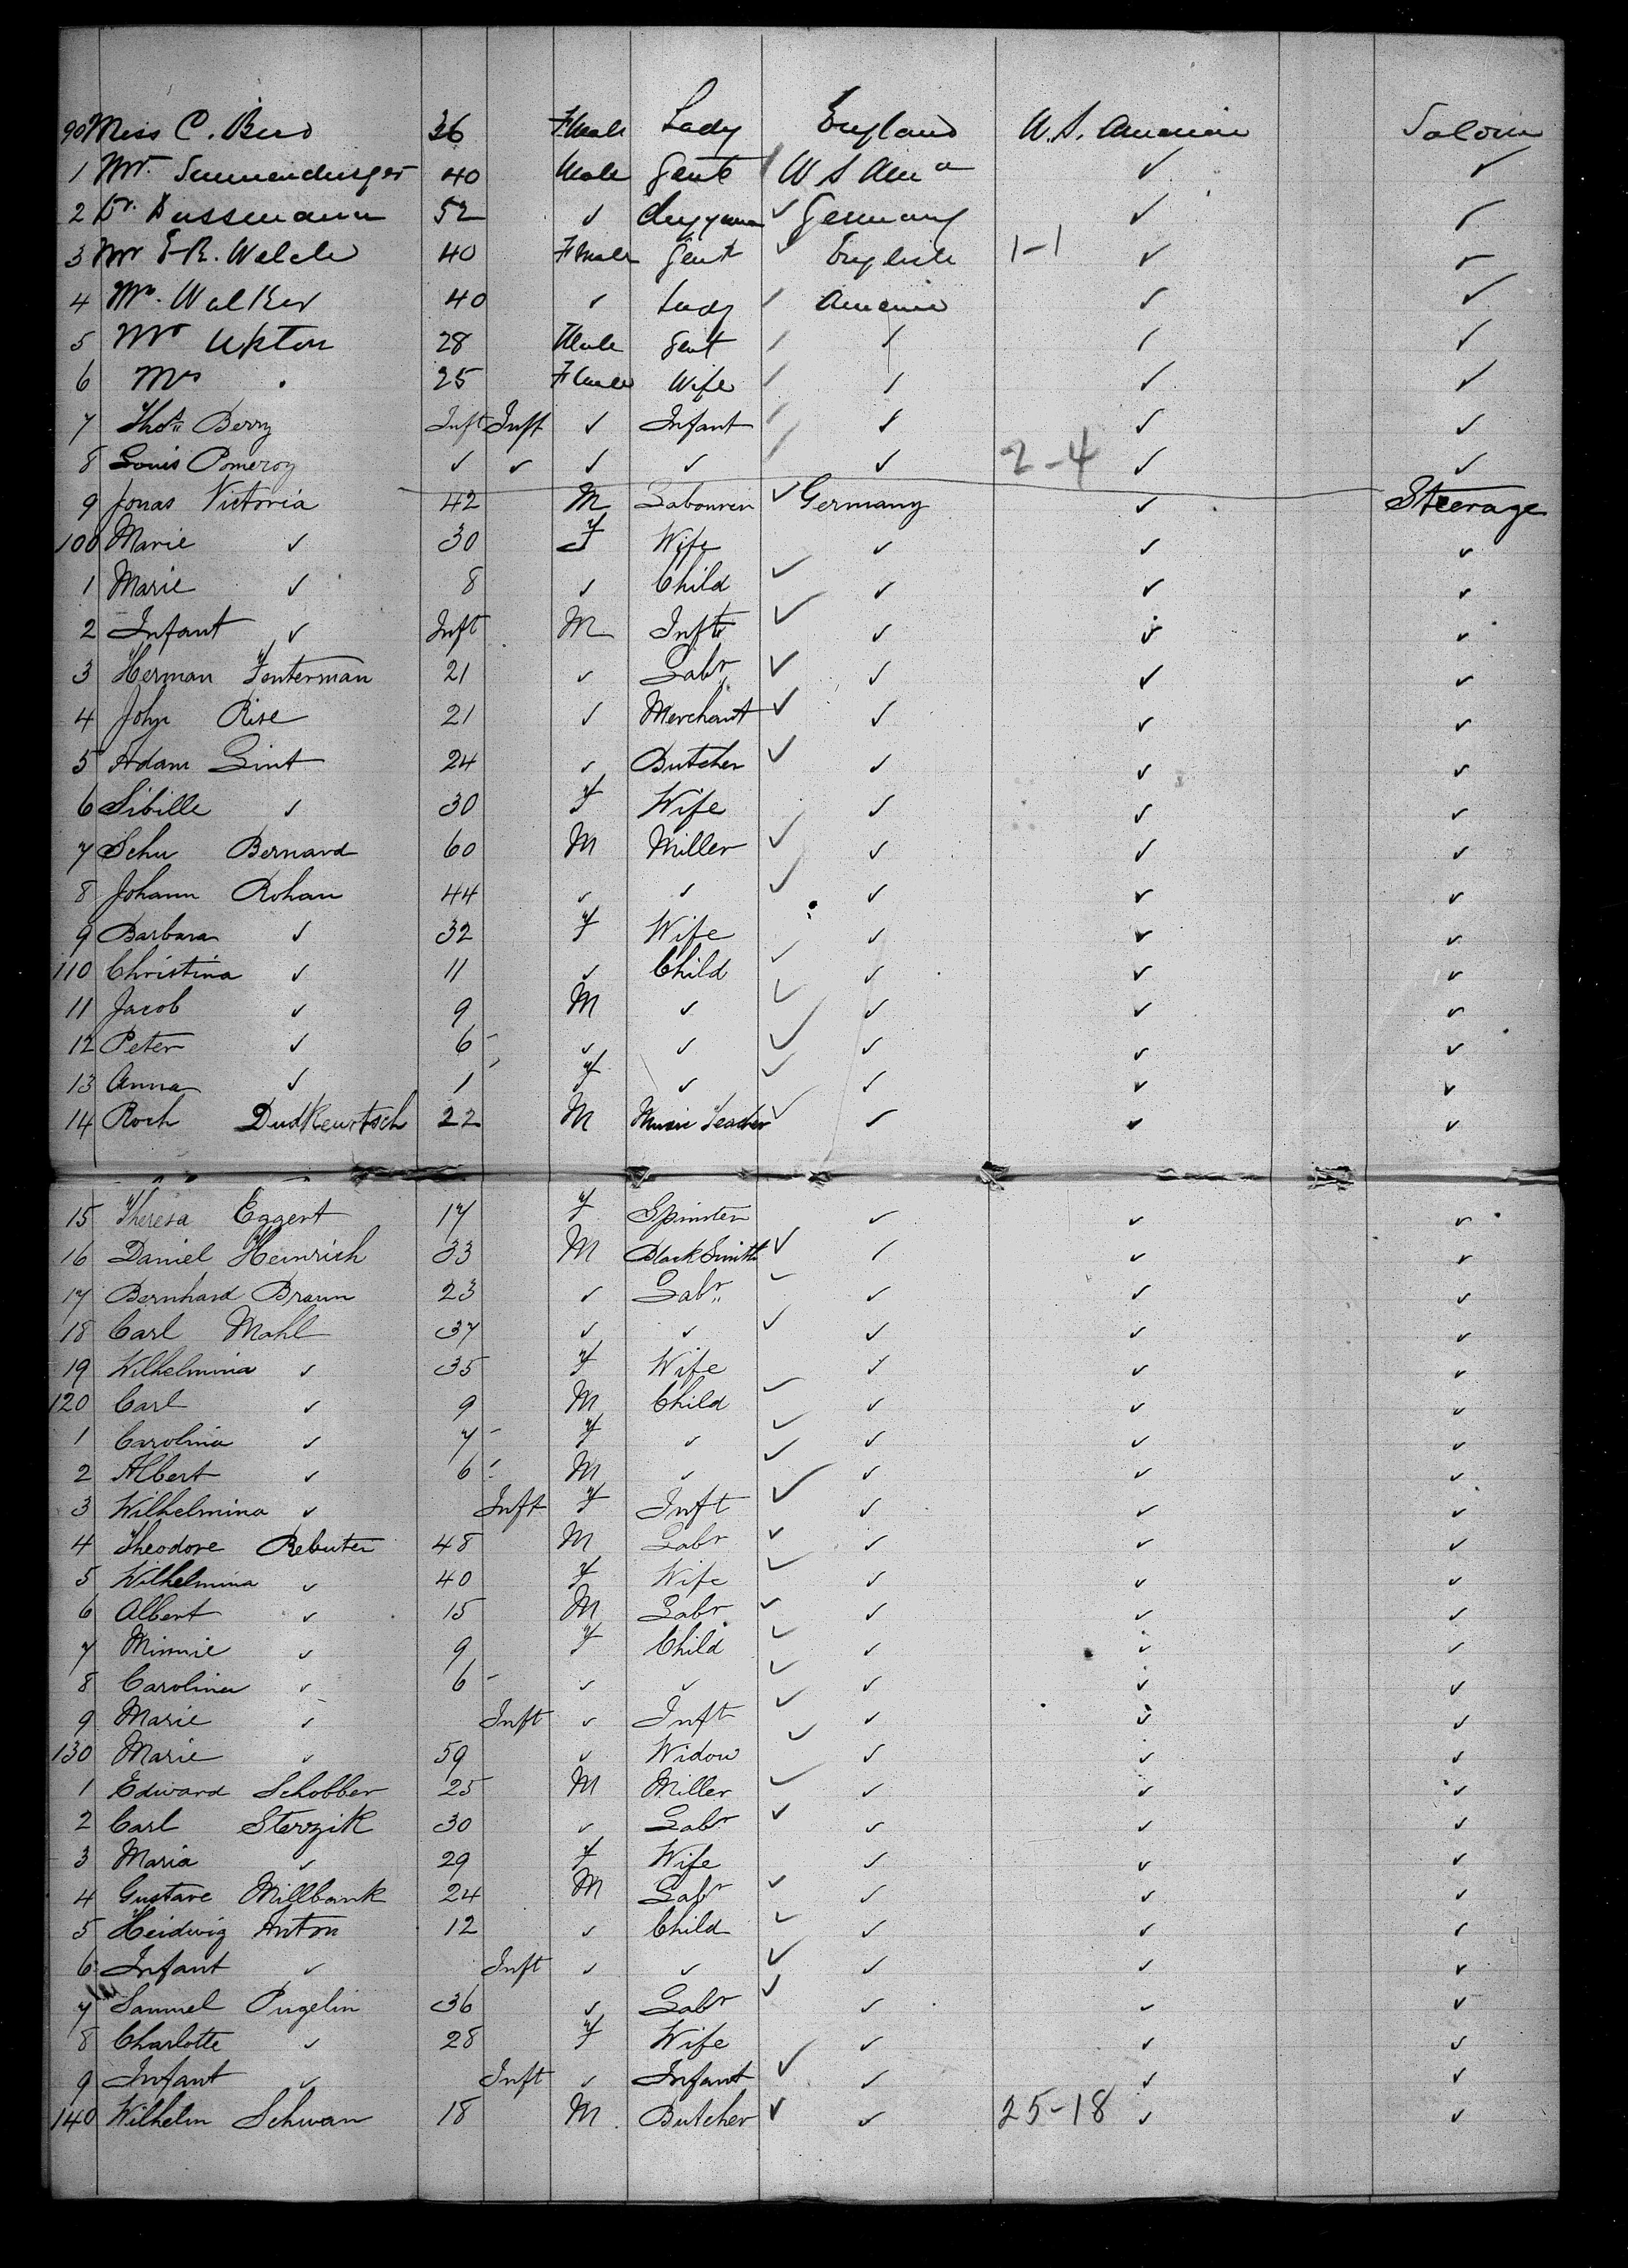 90 Miss C. Bird 36 Fmale Lady England U.S. America Saloon
1 Mr. 40 Male Gent U S Ama ✓ ✓
2 Dr. Dussmann 52 ✓ ✓ Germany ✓ ✓
3 Mr E-R. Welch 40 Fmale Gent ✓ English 1-1 ✓ ✓
4 Mrs. Walker 40 ✓ Lady America ✓ ✓
5 Mr Upton 28 Male Gent ✓ ✓ ✓
6 Mrs " 25 Fmale Wife ✓ ✓ ✓
7 Thos. Berry Inft Inft ✓ Infant ✓ ✓ ✓
8 Louis Pomeroy ✓ ✓ ✓ ✓ ✓ 2-4 ✓ ✓
9 Jonas Victoria 42 M Labourer ✓ Germany ✓ Steerage
100 Marie ✓ 30 F Wife ✓ ✓ ✓
1 Marie ✓ 8 ✓ Child ✓ ✓ ✓ ✓
2 Infant ✓ Inft M Inft ✓ ✓ ✓ ✓
3 Herman Fenterman 21 ✓ Labr ✓ ✓ ✓ ✓
4 John Rise 21 ✓ Merchant ✓ ✓ ✓ ✓
5 Adam Lint 24 ✓ Butcher ✓ ✓ ✓ ✓
6 Sibille ✓ 30 F Wife ✓ ✓ ✓
7 Schu Bernard 60 M Miller ✓ ✓ ✓ ✓
8 Johann Rohan 44 ✓ ✓ ✓ ✓ ✓ ✓
9 Barbara ✓ 32 F Wife ✓ ✓ ✓
110 Christina ✓ 11 ✓ Child ✓ ✓ ✓ ✓
11 Jacob ✓ 9 M ✓ ✓ ✓ ✓ ✓
12 Peter ✓ 6 ✓ ✓ ✓ ✓ ✓ ✓
13 Anna ✓ 1 F ✓ ✓ ✓ ✓ ✓
14 Roch Dudkeurtsch 22 M Music Teacher ✓ ✓ ✓ ✓
15 Theresa Eggert 17 F Spinster ✓ ✓ ✓
16 Daniel Heinrich 33 M BlackSmith ✓ ✓ ✓ ✓
17 Bernhard Braun 23 ✓ Labr ✓ ✓ ✓ ✓
18 Carl Mahl 37 ✓ ✓ ✓ ✓ ✓ ✓
19 Wilhelmina ✓ 35 F Wife ✓ ✓ ✓
120 Carl ✓ 9 M Child ✓ ✓ ✓ ✓
1 Carolina ✓ 7 F ✓ ✓ ✓ ✓ ✓
2 Albert ✓ 6 M ✓ ✓ ✓ ✓ ✓
3 Wilhelmina ✓ Inft F Inft ✓ ✓ ✓ ✓
4 Theodore Rebuter 48 M Labr ✓ ✓ ✓ ✓
5 Wilhelmina ✓ 40 F Wife ✓ ✓ ✓ ✓
6 Albert ✓ 15 M Labr ✓ ✓ ✓ ✓
7 Minnie ✓ 9 F Child ✓ ✓ ✓ ✓
8 Carolina ✓ 6 ✓ ✓ ✓ ✓ ✓ ✓
9 Marie ✓ Inft ✓ Inft ✓ ✓ ✓ ✓
130 Marie ✓ 59 ✓ Widow ✓ ✓ ✓ ✓
1 Edward Schobber 25 M Miller ✓ ✓ ✓ ✓
2 Carl Sterzik 30 ✓ Labr ✓ ✓ ✓ ✓
3 Maria ✓ 29 F Wife ✓ ✓ ✓
4 Gustave Millbank 24 M Labr ✓ ✓ ✓ ✓
5 Heidwig Anton 12 ✓ Child ✓ ✓ ✓ ✓
6 Infant ✓ Inft ✓ ✓ ✓ ✓ ✓ ✓
7 Samuel Pugelin 36 ✓ Labr ✓ ✓ ✓ ✓
8 Charlotte ✓ 28 F Wife ✓ ✓ ✓
9 Infant ✓ Inft ✓ Infant ✓ ✓ ✓ ✓
140 Wilhelm Schwan 18 M Butcher ✓ ✓ 25-18 ✓ ✓